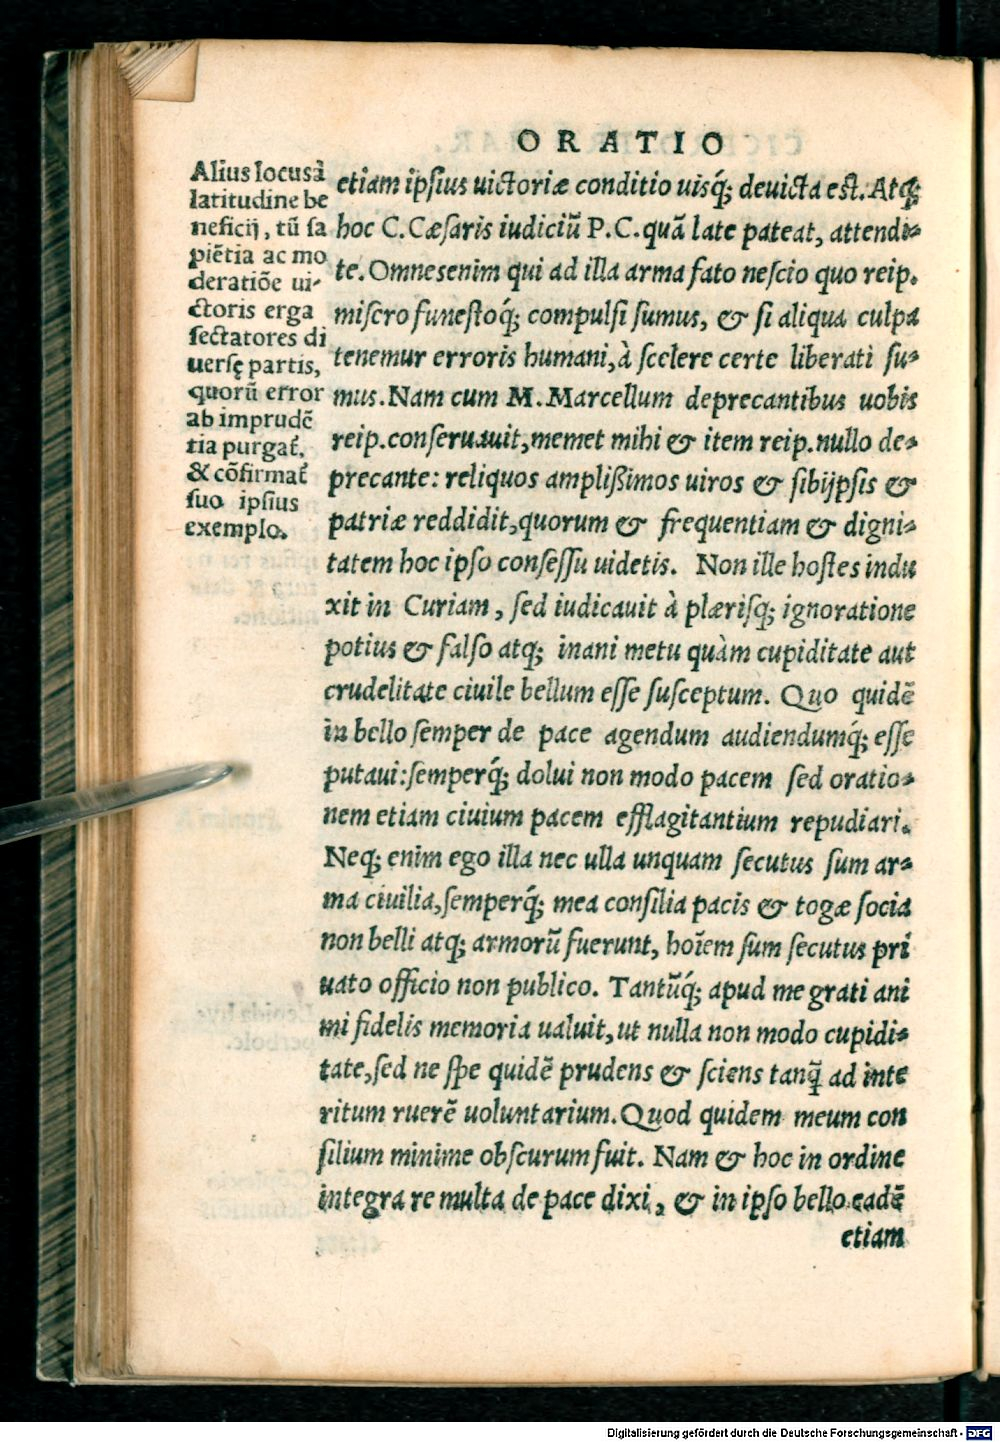 ORATIO
Alius locus à
latitudine be
neficij, tũ sa
piẽtia ac mo
deratiõe ui-
ctoris erga
sectatores di
uersę partis,
quorũ error
ab imprudẽ
tia purgat́.
& cõfirmat́
suo ipsius
exemplo.
etiam ipsius uictoriæ conditio uisq́; deuicta est. Atq;
hoc C. Cæsaris iudiciũ P.C. quã late pateat, attendi-
te. Omnes enim qui ad illa arma fato nescio quo reip.
misero funestoq́; compulsi sumus, & si aliqua culpa
tenemur erroris humani, à scelere certe liberati su-
mus. Nam cum M. Marcellum deprecantibus uobis
reip. conseruauit, memet mihi & item reip. nullo de-
precante: reliquos amplißimos uiros & sibijpsis &
patriæ reddidit, quorum & frequentiam & digni-
tatem hoc ipso consessu uidetis. Non ille hostes indu
xit in Curiam, sed iudicauit à plærisq́; ignoratione
potius & falso atq; inani metu quàm cupiditate aut
crudelitate ciuile bellum esse susceptum. Quo quidẽ
in bello semper de pace agendum audiendumq́; esse
putaui: semperq́; dolui non modo pacem sed oratio-
nem etiam ciuium pacem efflagitantium repudiari.
Neq; enim ego illa nec ulla unquam secutus sum ar-
ma ciuilia, semperq́; mea consilia pacis & togæ socia
non belli atq; armorũ fuerunt, hoĩem sum secutus pri
uato officio non publico. Tantũq́; apud me grati ani
mi fidelis memoria ualuit, ut nulla non modo cupidi-
tate, sed ne spe quidẽ prudens & sciens tanq̃ ad inte
ritum ruerẽ uoluntarium. Quod quidem meum con
silium minime obscurum fuit. Nam & hoc in ordine
integra re multa de pace dixi, & in ipso bello eadẽ
etiam
Digitalisierung gefördert durch die Deutsche Forschungsgemeinschaft - DFG